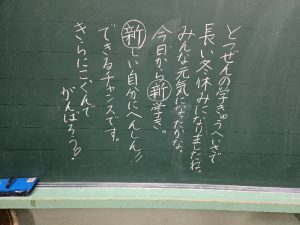 とつぜんの学きゅうへいさで
長い冬休みになりましたね。
みんな元気になったかな。
今日から新学き。
新しい自分にへんしん!!
できるチャンスです。
きらりこくんで
がんばろう!